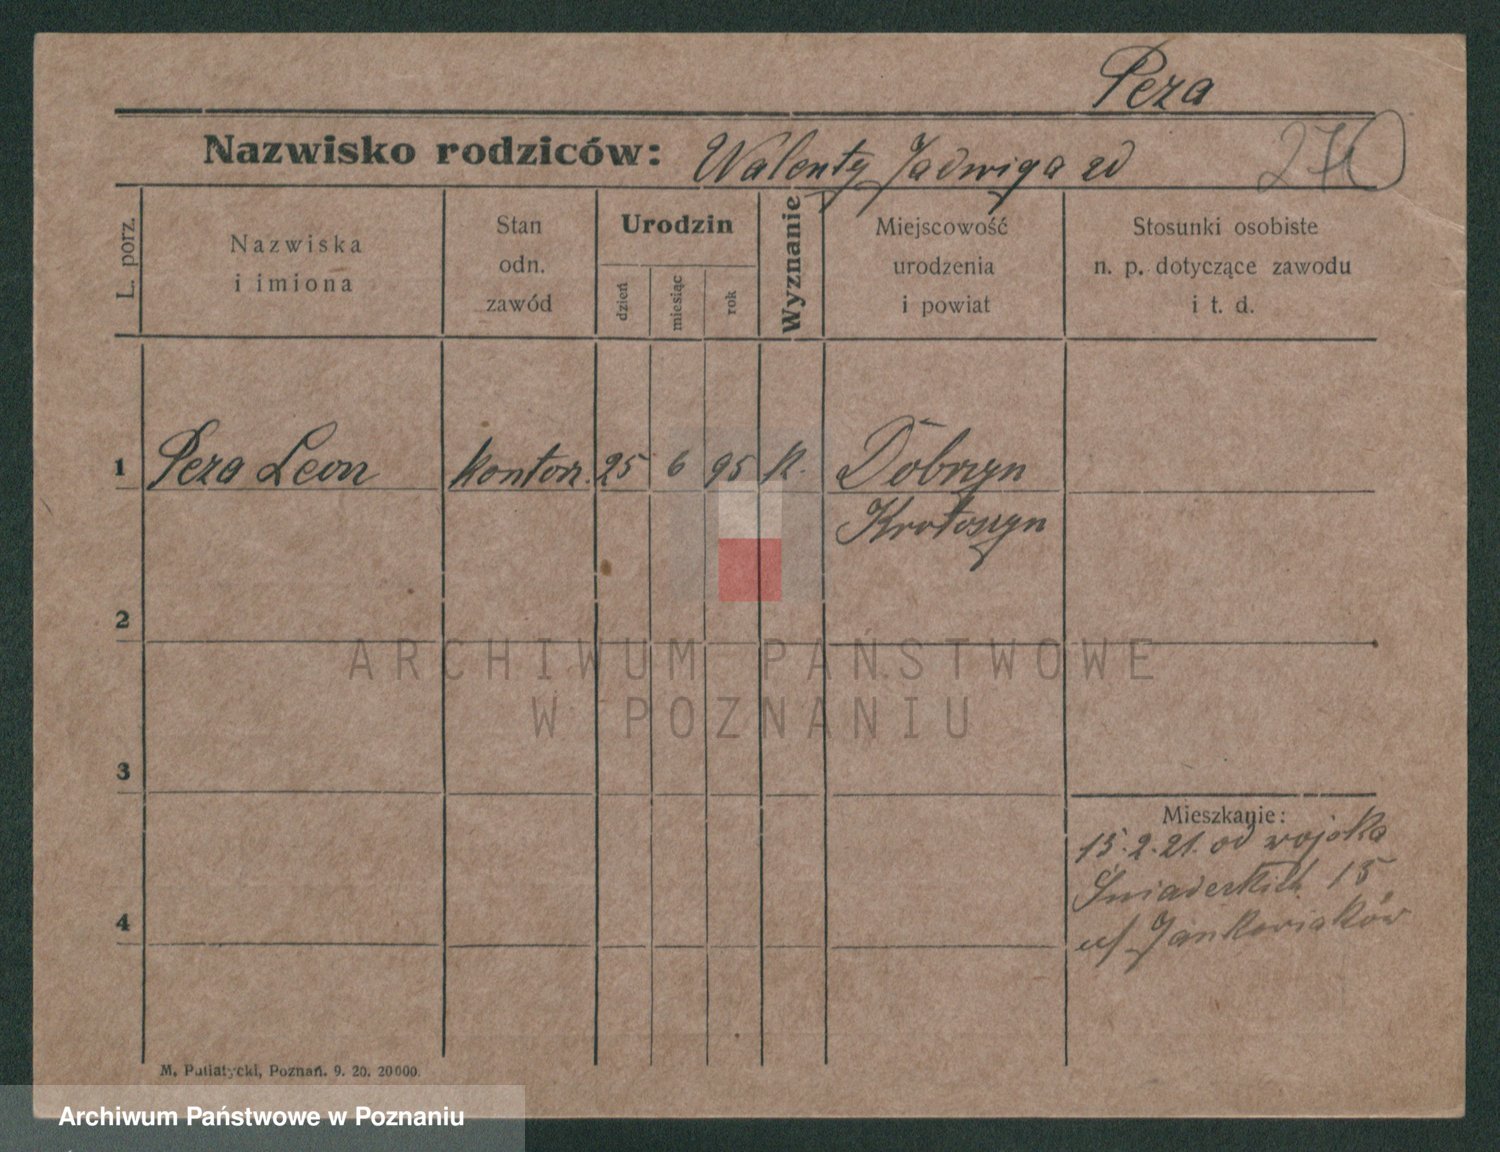 Peza
Nazwisko rodziców: Walenty Jadwiga zd
L. porz.
Nazwiska
i imiona
Stan
odn.
zawód
Urodzin
dzień
miesiąc
rok
Wyznanie
Miejscowość
urodzenia
i powiat
Stosunki osobiste
n. p. dotyczące zawodu
i t. d.
1 Peza Leon kontor. 25 6 95 k. Dobrzyn
Krotoszyn
2
ARCHIWUM PAŃSTWOWE
W POZNANIU
3
Mieszkanie:
15.2.21. od wojska
Śniadeckich 15
u/ Jankowiaków
4
M. Putiatycki, Poznań. 9. 20. 20000.
Archiwum Państwowe w Poznaniu